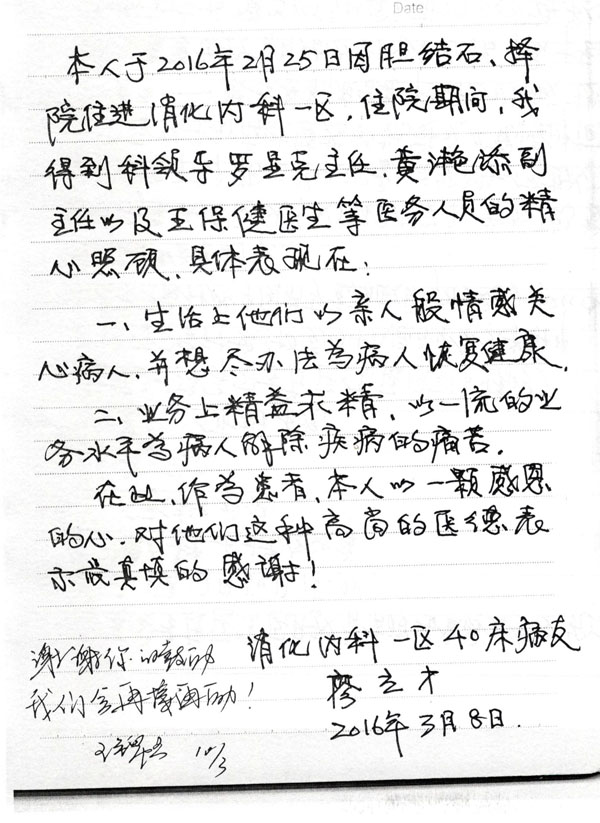 Date
本人于2016年2月25日因胆结石、择
院住进消化内科一区,住院期间,我
得到科领导罗显克主任、黄滟添副
主任以及王保健医生等医务人员的精
心照顾,具体表现在:
一、生活上他们以亲人般情感关
心病人,并想尽办法為病人恢复健康,
二、业务上精益求精,以一流的业
务水平為病人解除疾病的痛苦。
在此,作為患者,本人以一颗感恩
的心,对他们这种高尚的医德表
示最真填的感谢!
消化内科一区40床病友
廖立才
2016年3月8日.
谢谢你的鼓励
我们会再接再励!
10/3